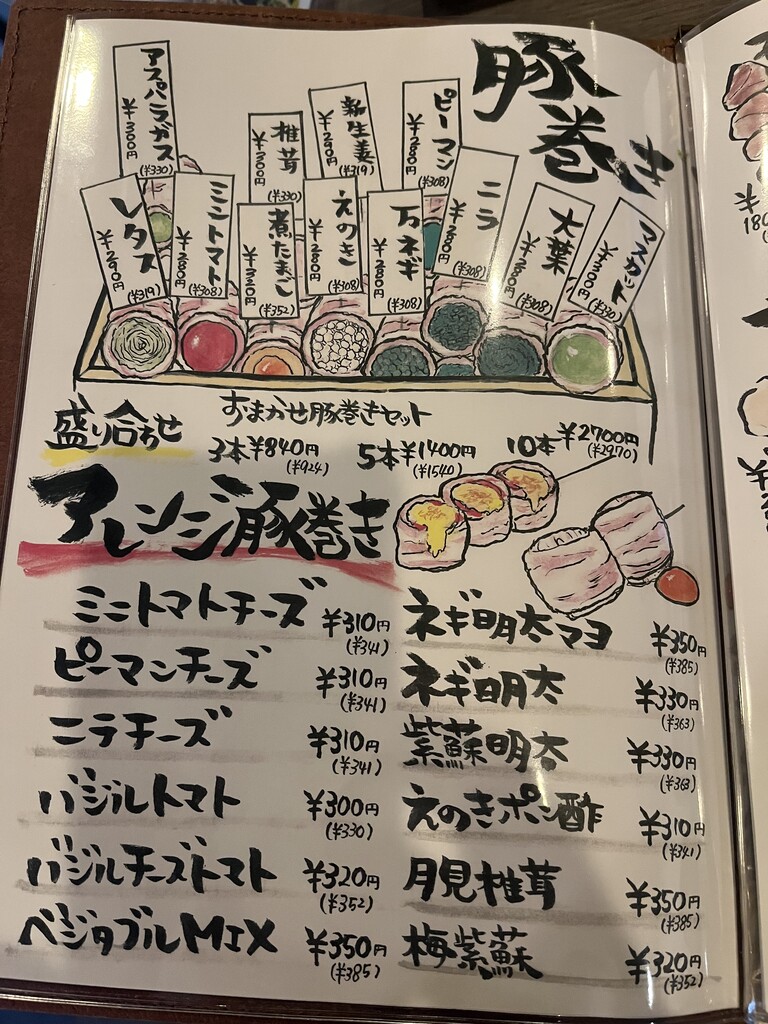 豚巻き
アスパラガス ¥300円 (¥330)
椎茸 ¥300円 (¥330)
新生姜 ¥290円 (¥319)
ピーマン ¥280円 (¥308)
レタス ¥290円 (¥319)
ミニトマト ¥280円 (¥308)
煮たまご ¥320円 (¥352)
えのき ¥280円 (¥308)
万ネギ ¥280円 (¥308)
ニラ ¥280円 (¥308)
大葉 ¥280円 (¥308)
マスカット ¥300円 (¥330)
盛り合わせ
おまかせ豚巻きセット
3本¥840円 (¥924)
5本¥1400円 (¥1540)
10本¥2700円 (¥2970)
アレンジ豚巻き
ミニトマトチーズ ¥310円 (¥341)
ピーマンチーズ ¥310円 (¥341)
ニラチーズ ¥310円 (¥341)
バジルトマト ¥300円 (¥330)
バジルチーズトマト ¥320円 (¥352)
ベジタブルMIX ¥350円 (¥385)
ネギ明太マヨ ¥350円 (¥385)
ネギ明太 ¥330円 (¥363)
紫蘇明太 ¥330円 (¥363)
えのきポン酢 ¥310円 (¥341)
月見椎茸 ¥350円 (¥385)
梅紫蘇 ¥320円 (¥352)